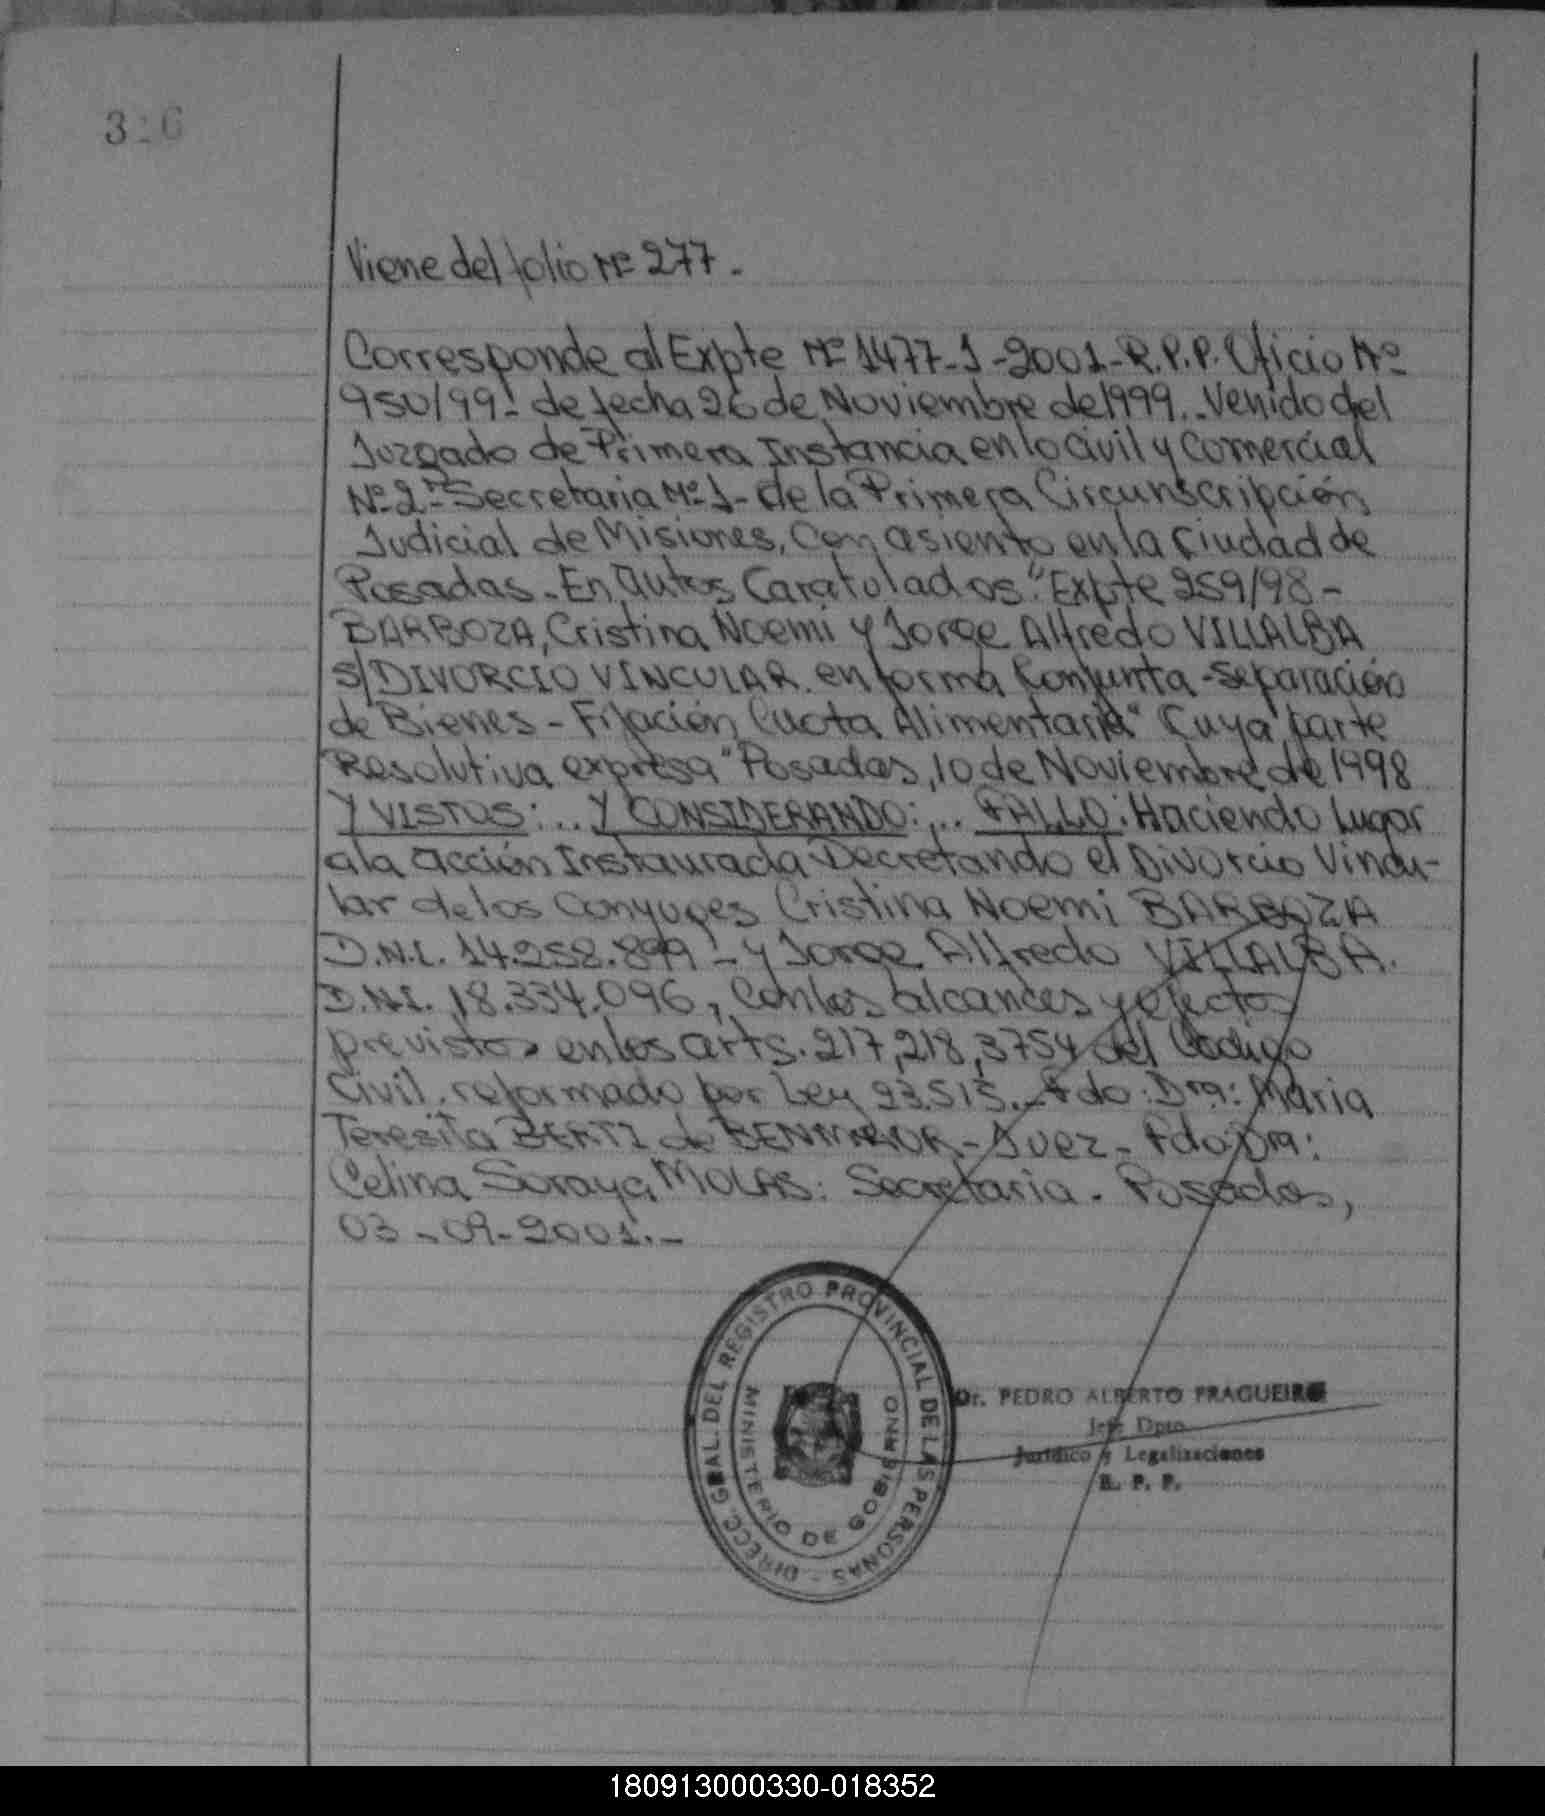 326
Viene del folio Nº 277.
Corresponde al Expte Nº 1477-J-2001-R.P.P. Oficio Nº
950/99- de fecha 26 de Noviembre de 1999.. Venido del
Juzgado de Primera Instancia en lo Civil y Comercial
Nº 2- Secretaria Nº 1- de la Primera Circunscripción
Judicial de Misiones, Con asiento en la Ciudad de
Posadas.- En Autos Caratulados: "Expte 259/98-
BARBOZA, Cristina Noemi y Jorge Alfredo VILLALBA
S/DIVORCIO VINCULAR. en forma Conjunta - Separación
de Bienes - Fijación Cuota Alimentaria" Cuya parte
Resolutiva expresa "Posadas, 10 de Noviembre de 1998
Y VISTOS:... Y CONSIDERANDO:... FALLO: Haciendo Lugar
a la acción Instaurada Decretando el Divorcio Vincu-
lar de los Conyuges Cristina Noemi BARBOZA
D.N.I. 14.258.899- y Jorge Alfredo VILLALBA.
D.N.I. 18.334.096, Con los alcances y efectos
previstos en los arts. 217, 218, 3754 del Codigo
Civil. reformado por Ley 23.515.- Fdo: Dra: Maria
Teresita BERTI de - Juez - Fdo Dra:
Celina Soraya MOLAS: Secretaria. Posadas,
03-09-2001.-
DIRECC. GRAL. DEL REGISTRO PROVINCIAL DE LAS PERSONAS -
MINISTERIO DE GOBIERNO
Dr. PEDRO ALBERTO FRAGUEIRO
Jefe Dpto.
Jurídico y Legalizaciones
R. P. P.
180913000330-018352